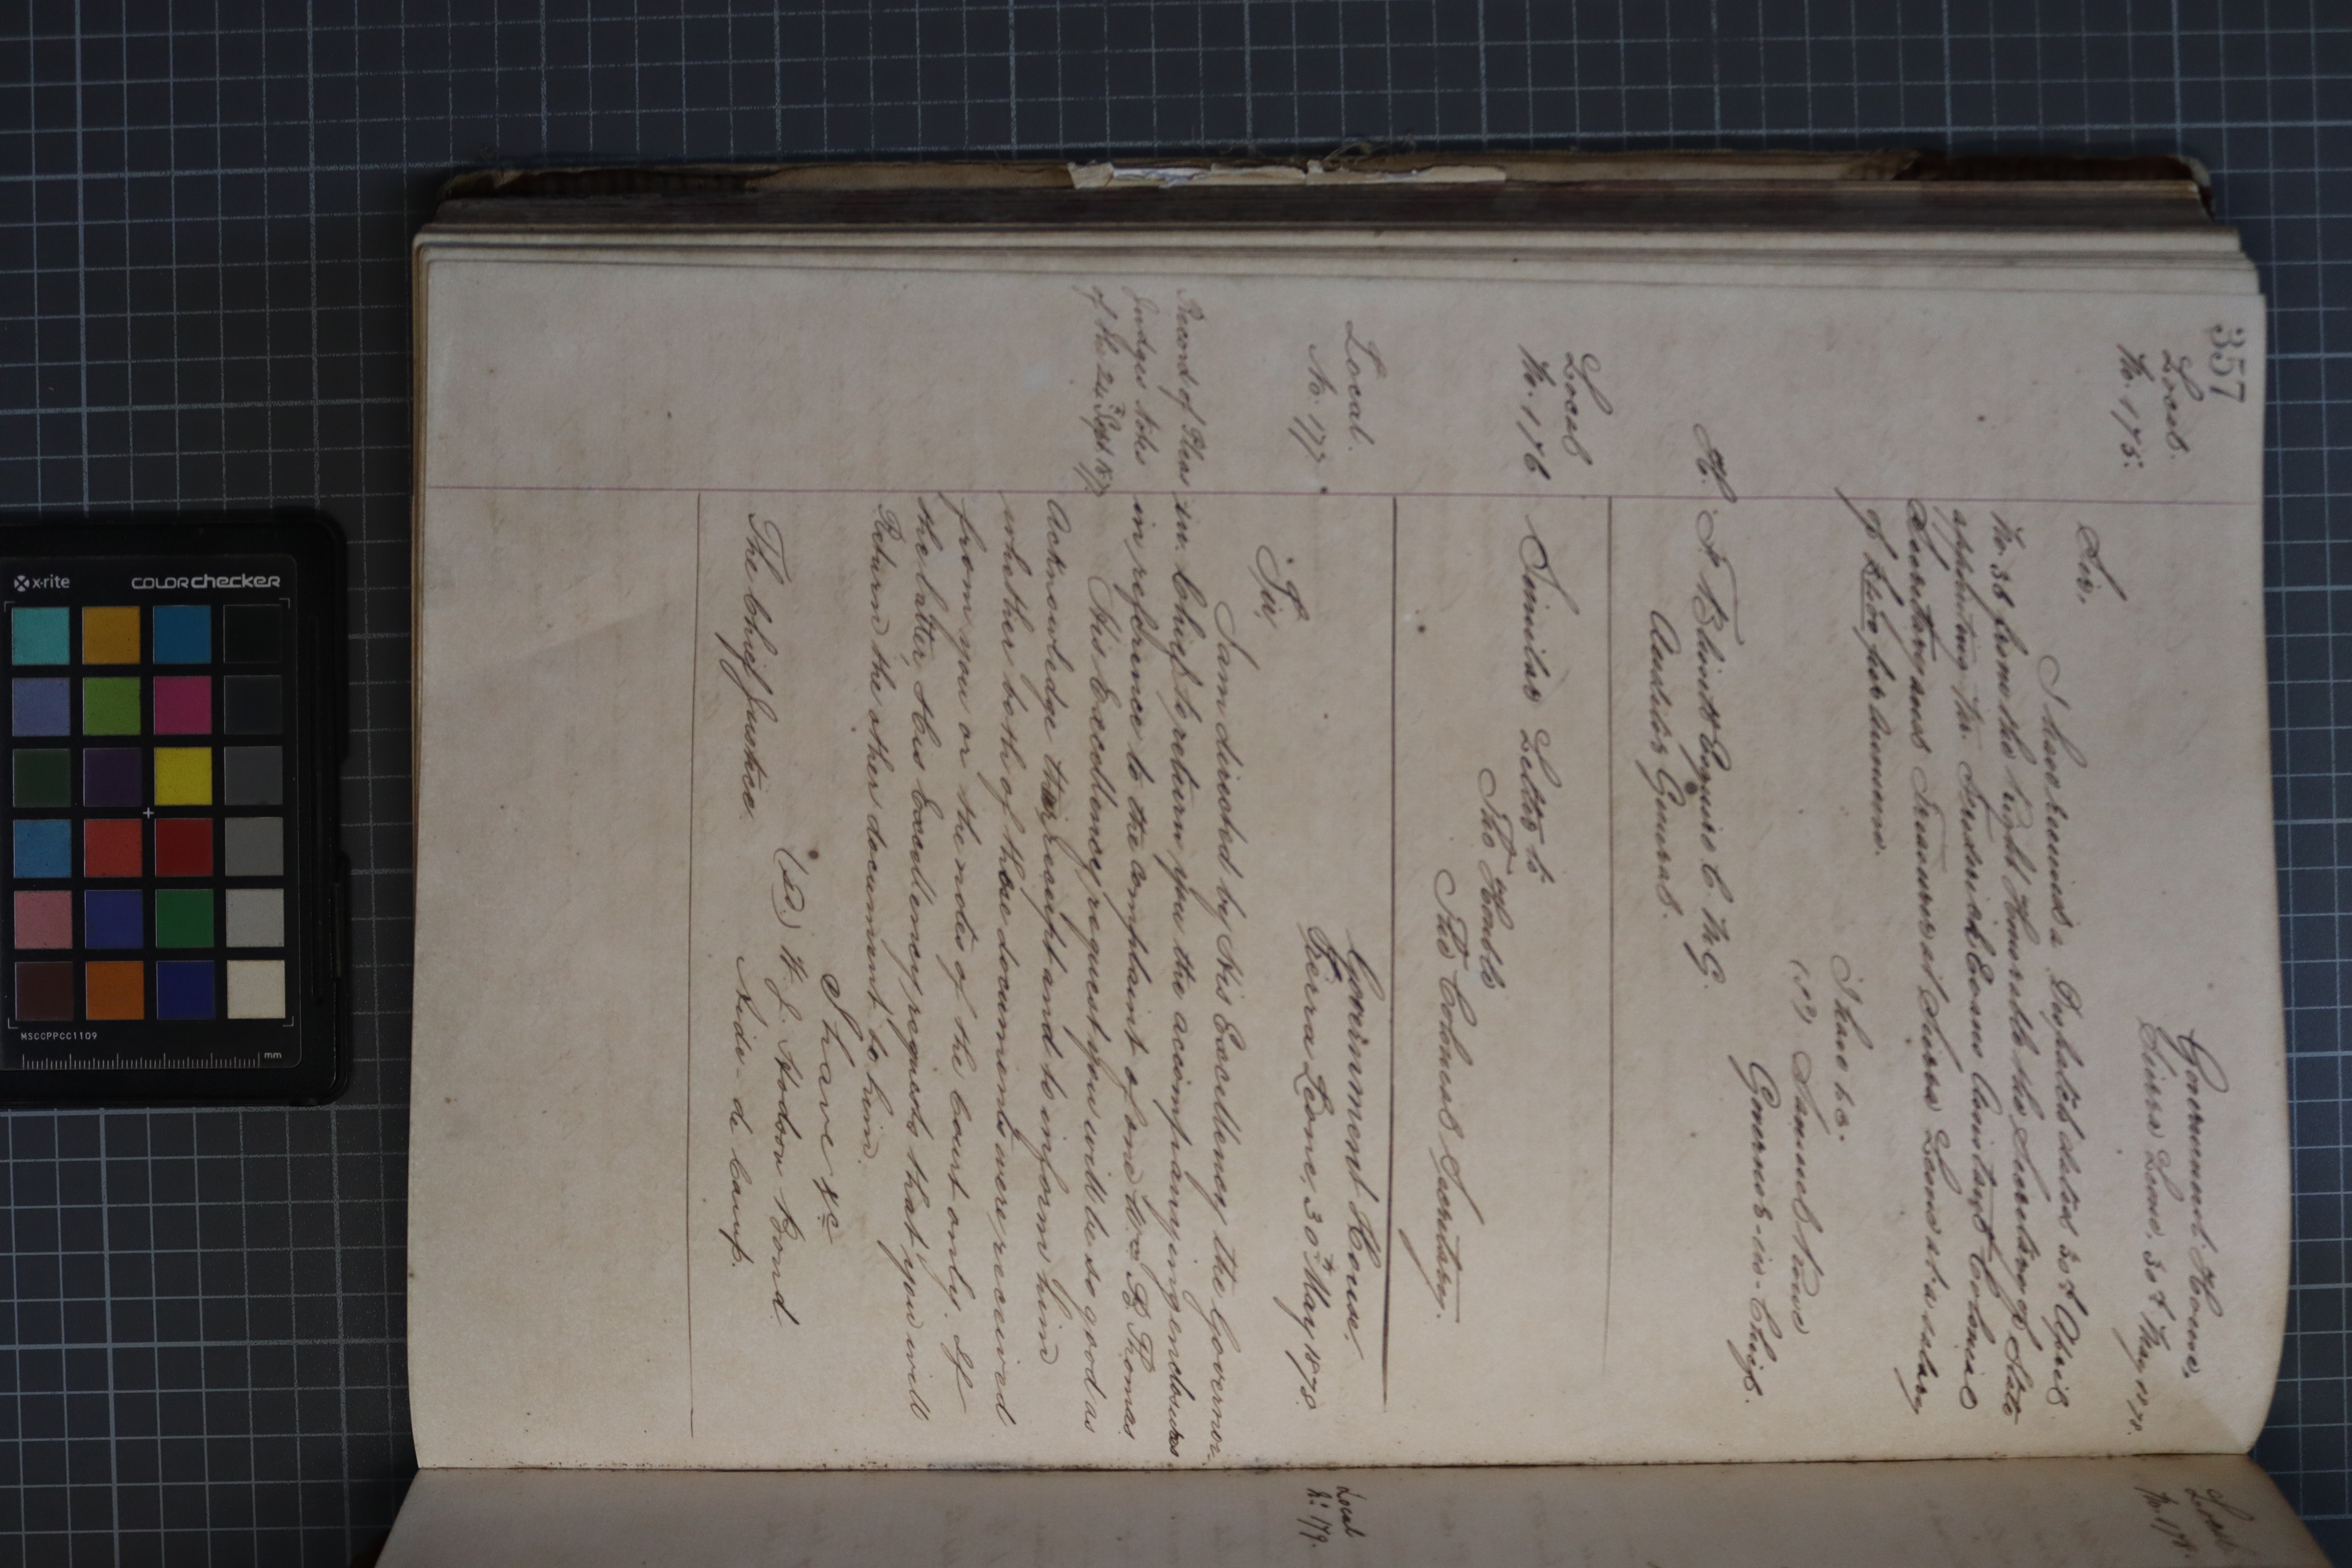 357
Local.
No. 175.
Government House,
Sierra Leone, 30th May 1878.
Sir,
I have received a Despatch dated 30th April
No. 38 from the Right Honourable the Secretary of State
appointing Mr. Frederick Evans Assistant Colonial
Secretary and Treasurer of Sierra Leone at a salary
of per annum.
I have &c.
(Sd) Samuel Rowe
Governor-in-Chief.
Esquire C.M.G.
Auditor General.
Local
No. 176
Similar Letter to
The Honble
The Colonial Secretary.
Local.
No. 177
Government House.
Sierra Leone, 30th May 1878.
Sir,
I am directed by His Excellency the Governor-
in-Chief to return you the accompanying enclosures
in reference to the complaint of one W. B. Thomas
Record of Pleas
Judges Notes
of the 24th Sept 187
His Excellency request you will be so good as
Acknowledge their receipt and to inform him
whether both of these documents were received
from you or the notes of the Court only. If
the latter, His Excellency requests that you will
Return the other document to him.
I have &c
(Sd.) W. J. Hodson Bond
Aide-de-Camp.
The Chief Justice
Local
No. 178.
Local
No. 179.
x-rite
COLORchecker
MSCCPPCC1109
mm